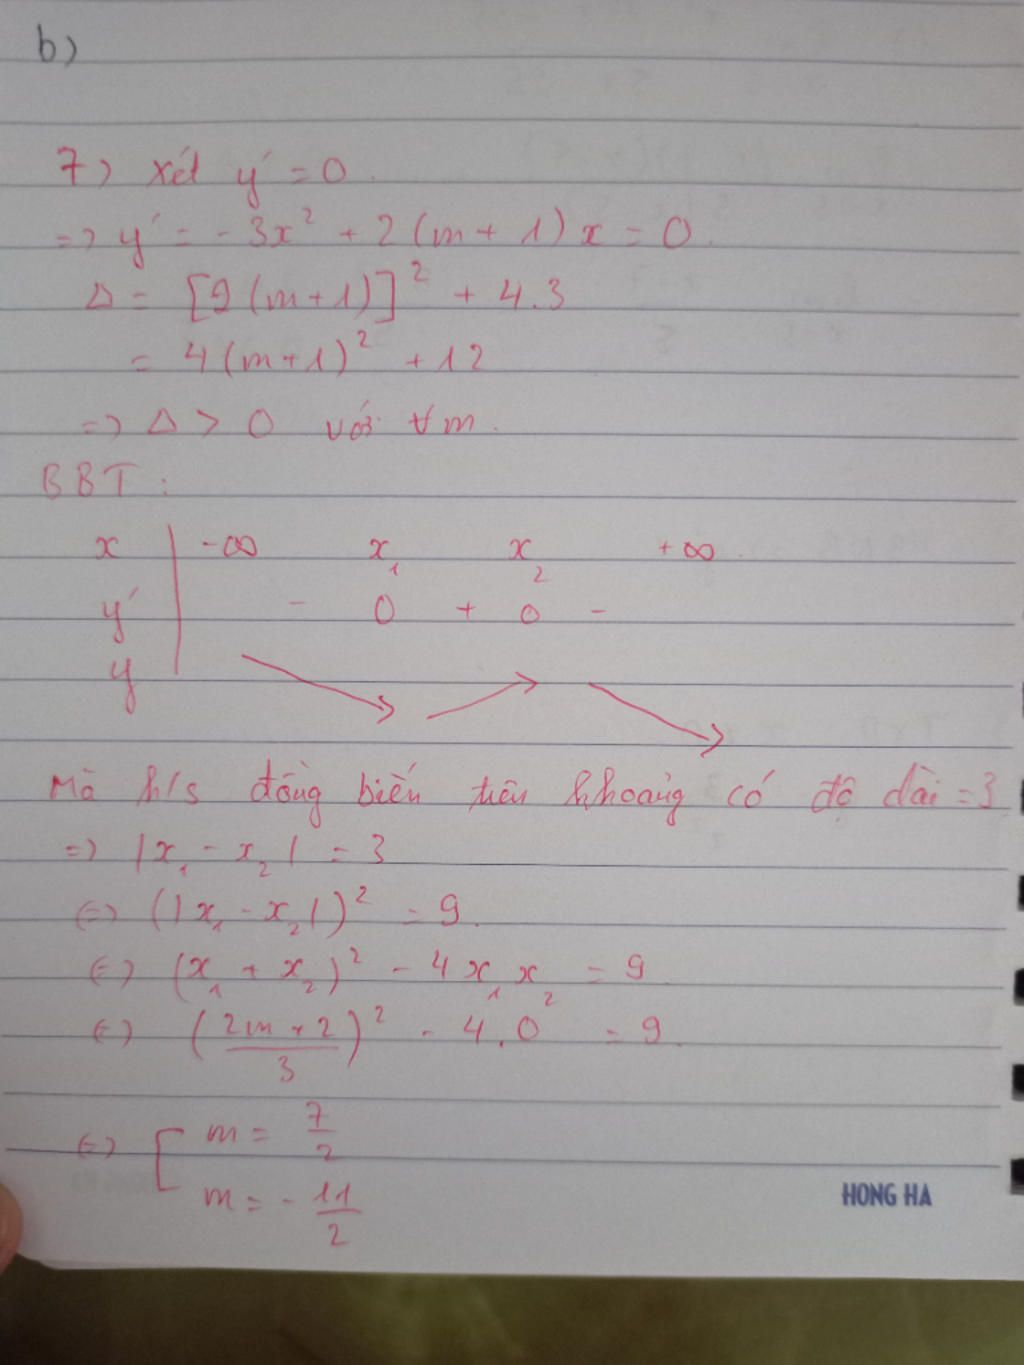 b)
7) Xét y' = 0.
=> y' = -3x² + 2(m+1)x = 0.
Δ = [2(m+1)]² + 4.3
= 4(m+1)² + 12
=> Δ > 0 với ∀m.
BBT :
x | -∞ x₁ x₂ +∞
y' - 0 + 0 -
y
Mà h/s đồng biến trên khoảng có độ dài = 3
=> |x₁ - x₂| = 3
<=> (|x₁ - x₂|)² = 9.
<=> (x₁ + x₂)² - 4x₁x₂ = 9
<=> ((2m+2)/3)² - 4.0 = 9.
<=> [ m = 7/2
m = -11/2
HONG HA